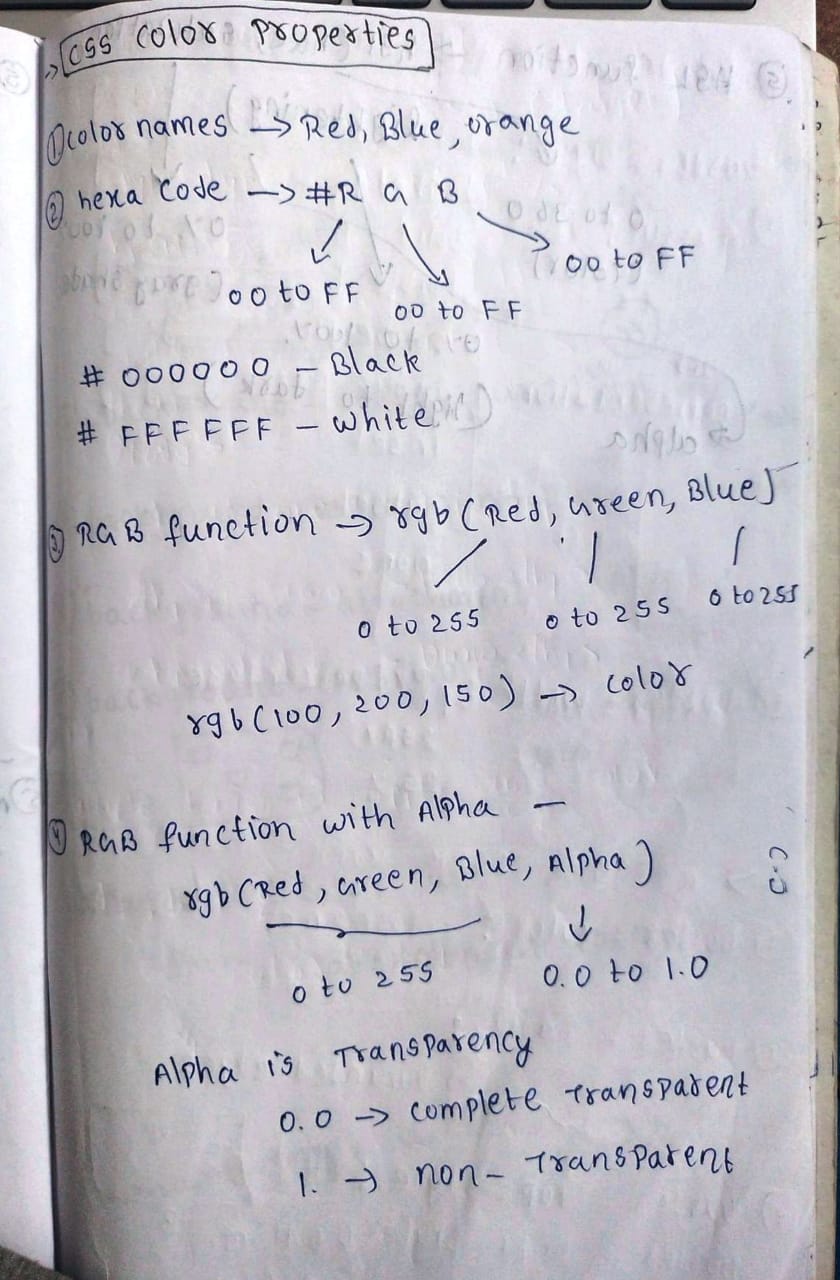 → CSS Color Properties
① color names → Red, Blue, orange
② hexa code → #R G B
00 to FF 00 to FF 00 to FF
# 000000 - Black
# FFFFFF - white
③ RGB function → rgb (Red, Green, Blue)
0 to 255 0 to 255 0 to 255
rgb (100, 200, 150) → color
④ RGB function with Alpha -
rgb (Red, Green, Blue, Alpha)
0 to 255 0.0 to 1.0
Alpha is Transparency
0.0 → complete Transparent
1. → non- Transparent